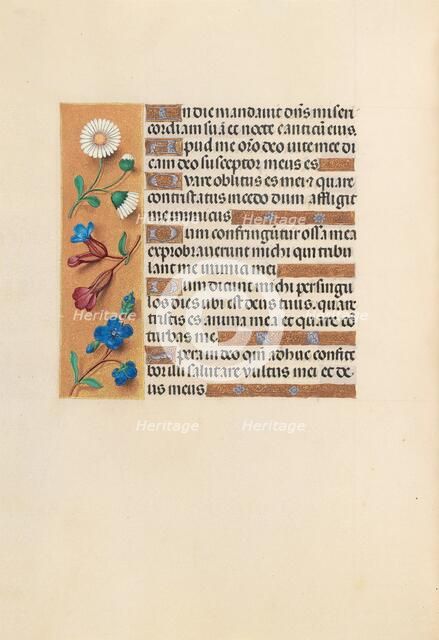 In die mandavit dn̄s miseri
cordiam suā et nocte canticū eius.
Apud me oro deo vite mee di
cam deo susceptor meus es
Quare oblitus es mei et quare
contristatus incedo dum affligit
me inimicus
Dum confringūtur ossa mea
exprobraverunt michi qui tribu
lant me inimici mei
Dum dicunt michi per singu
los dies ubi est deus tuus. quare
tristis es anima mea et quare cō
turbas me.
Spera in deo qm̄ adhuc confite
bor illi salutare vultus mei et de
us meus
Heritage
Heritage
Heritage
Heritage
Heritage
Heritage